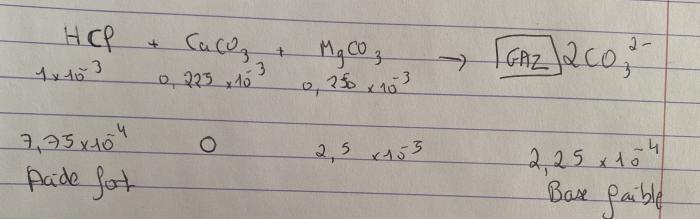 HCl + CaCO₃ + MgCO₃ → GAZ 2CO₃²⁻
1x10⁻³ 0,225 x10⁻³ 0,250 x10⁻³
7,75x10⁻⁴ 0 2,5 x10⁻³ 2,25 x10⁻⁴
Acide fort Base faible